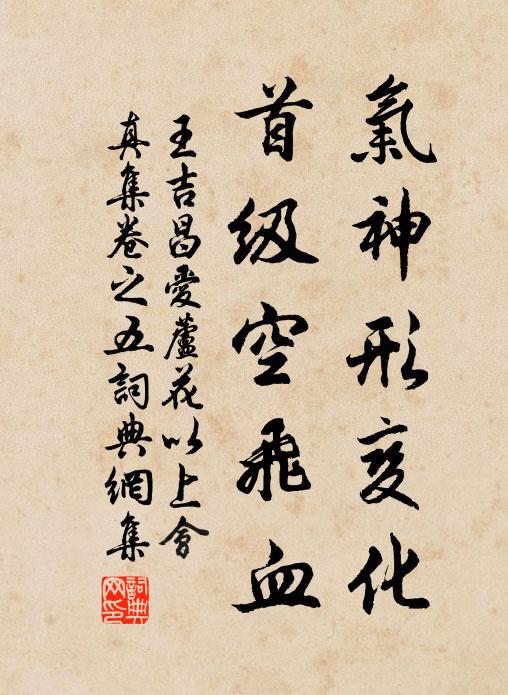 氣神形变化
首级空飛血
王吉昌愛蘆花以上會
真集卷之五詞典網集
詞典网印